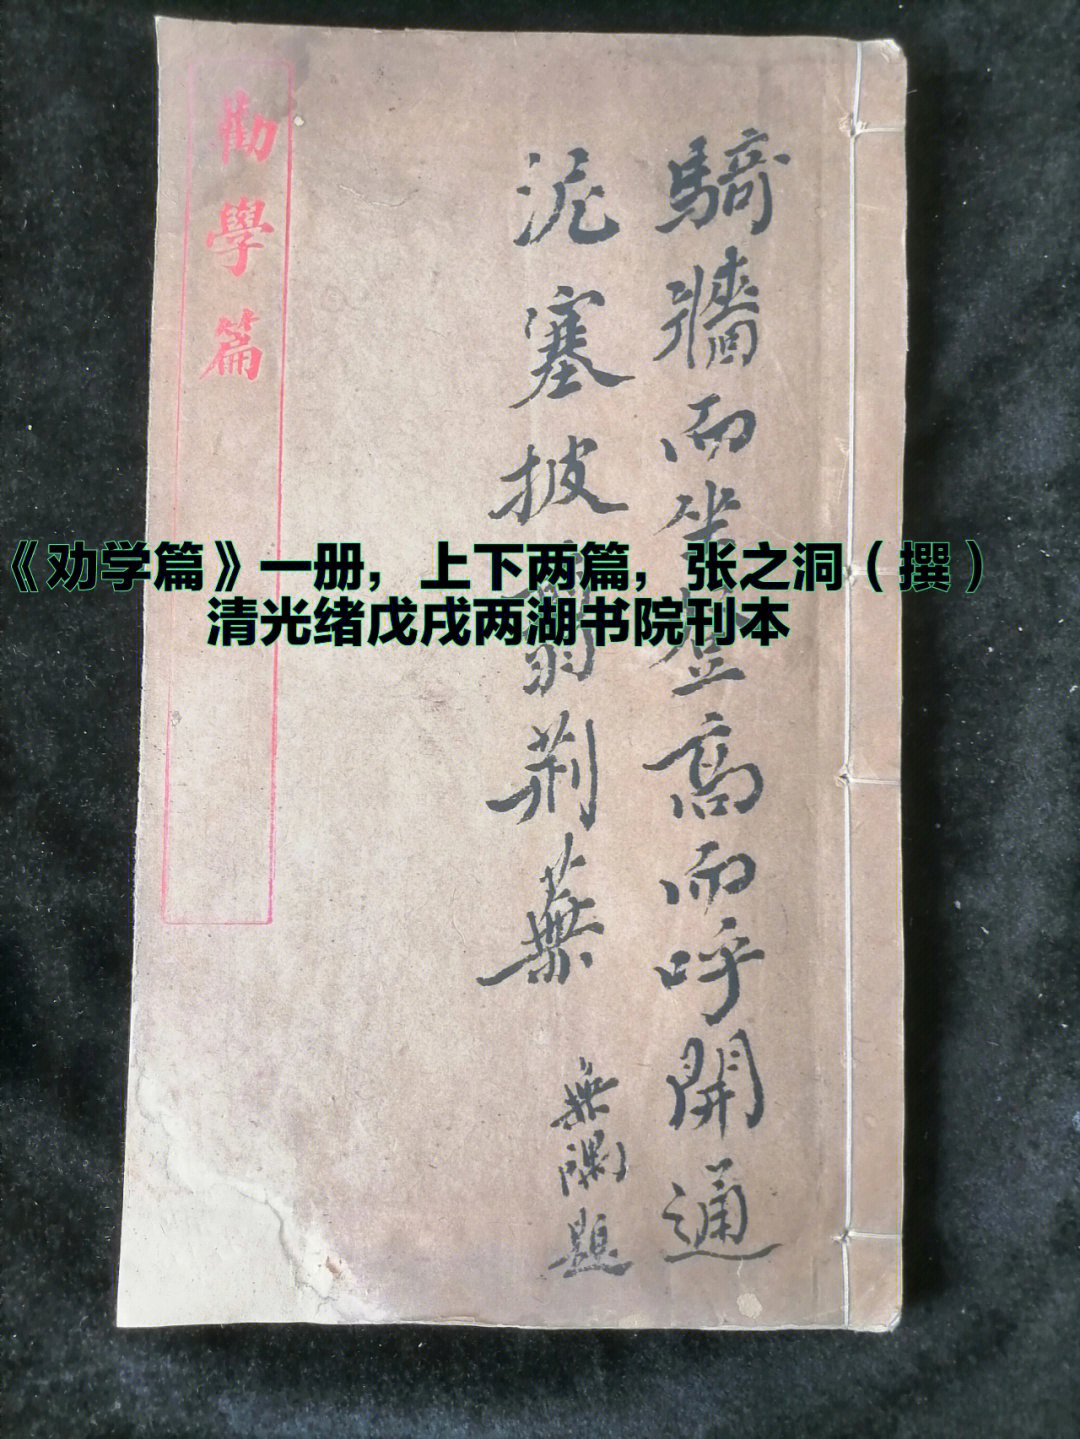 騎牆而坐登高而呼開通
泥塞披翦荆蕪
無隅題
勸學篇
《劝学篇》一册，上下两篇，张之洞（撰）
清光绪戊戌两湖书院刊本